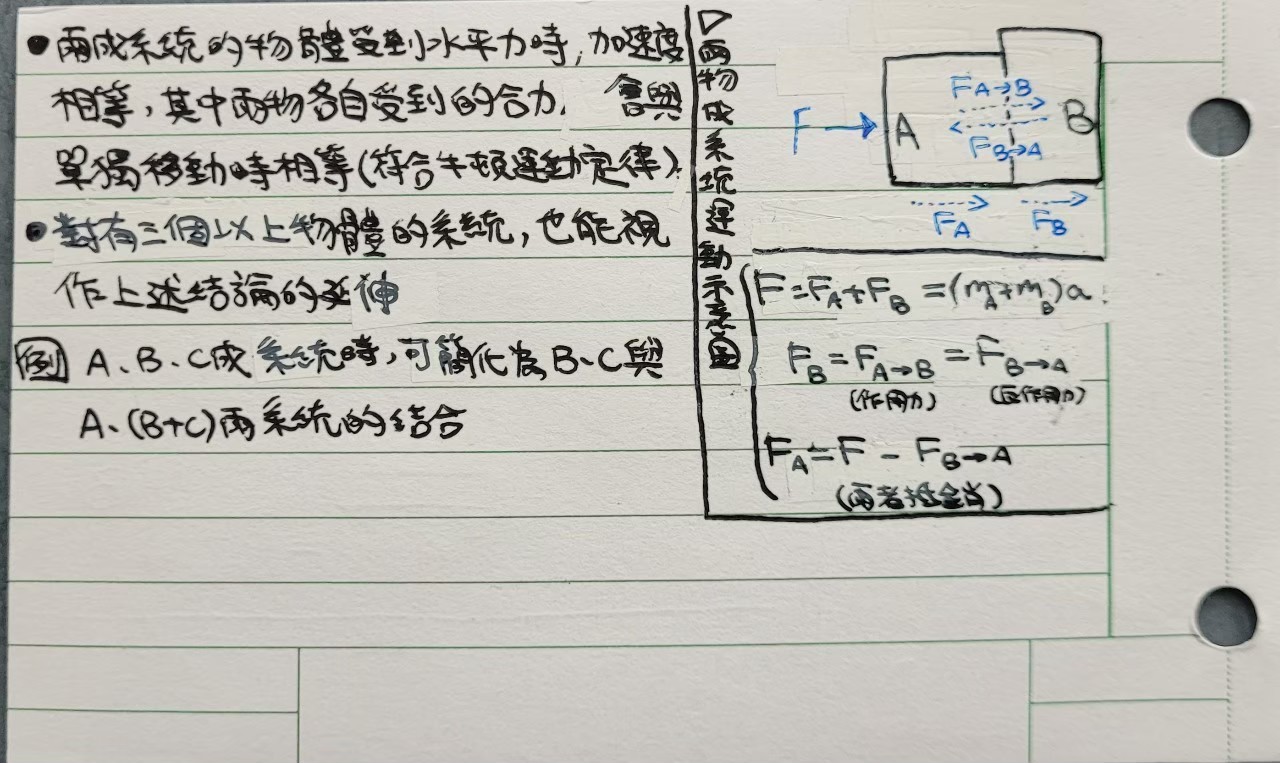 ●兩成系統的物體受到水平力時,加速度
相等,其中兩物各自受到的合力,會與
單獨移動時相等(符合牛頓運動定律).
●對有三個以上物體的系統,也能視
作上述結論的延伸
例 A、B、C成系統時,可簡化為B、C與
A、(B+C)兩系統的結合
▷兩物成系統運動示意圖
F→ A B
F_A→B
F_B→A
F_A F_B
F=F_A+F_B=(m_A+m_B)a
F_B=F_A→B=F_B→A
(作用力) (反作用力)
F_A=F-F_B→A
(兩者抵銷)